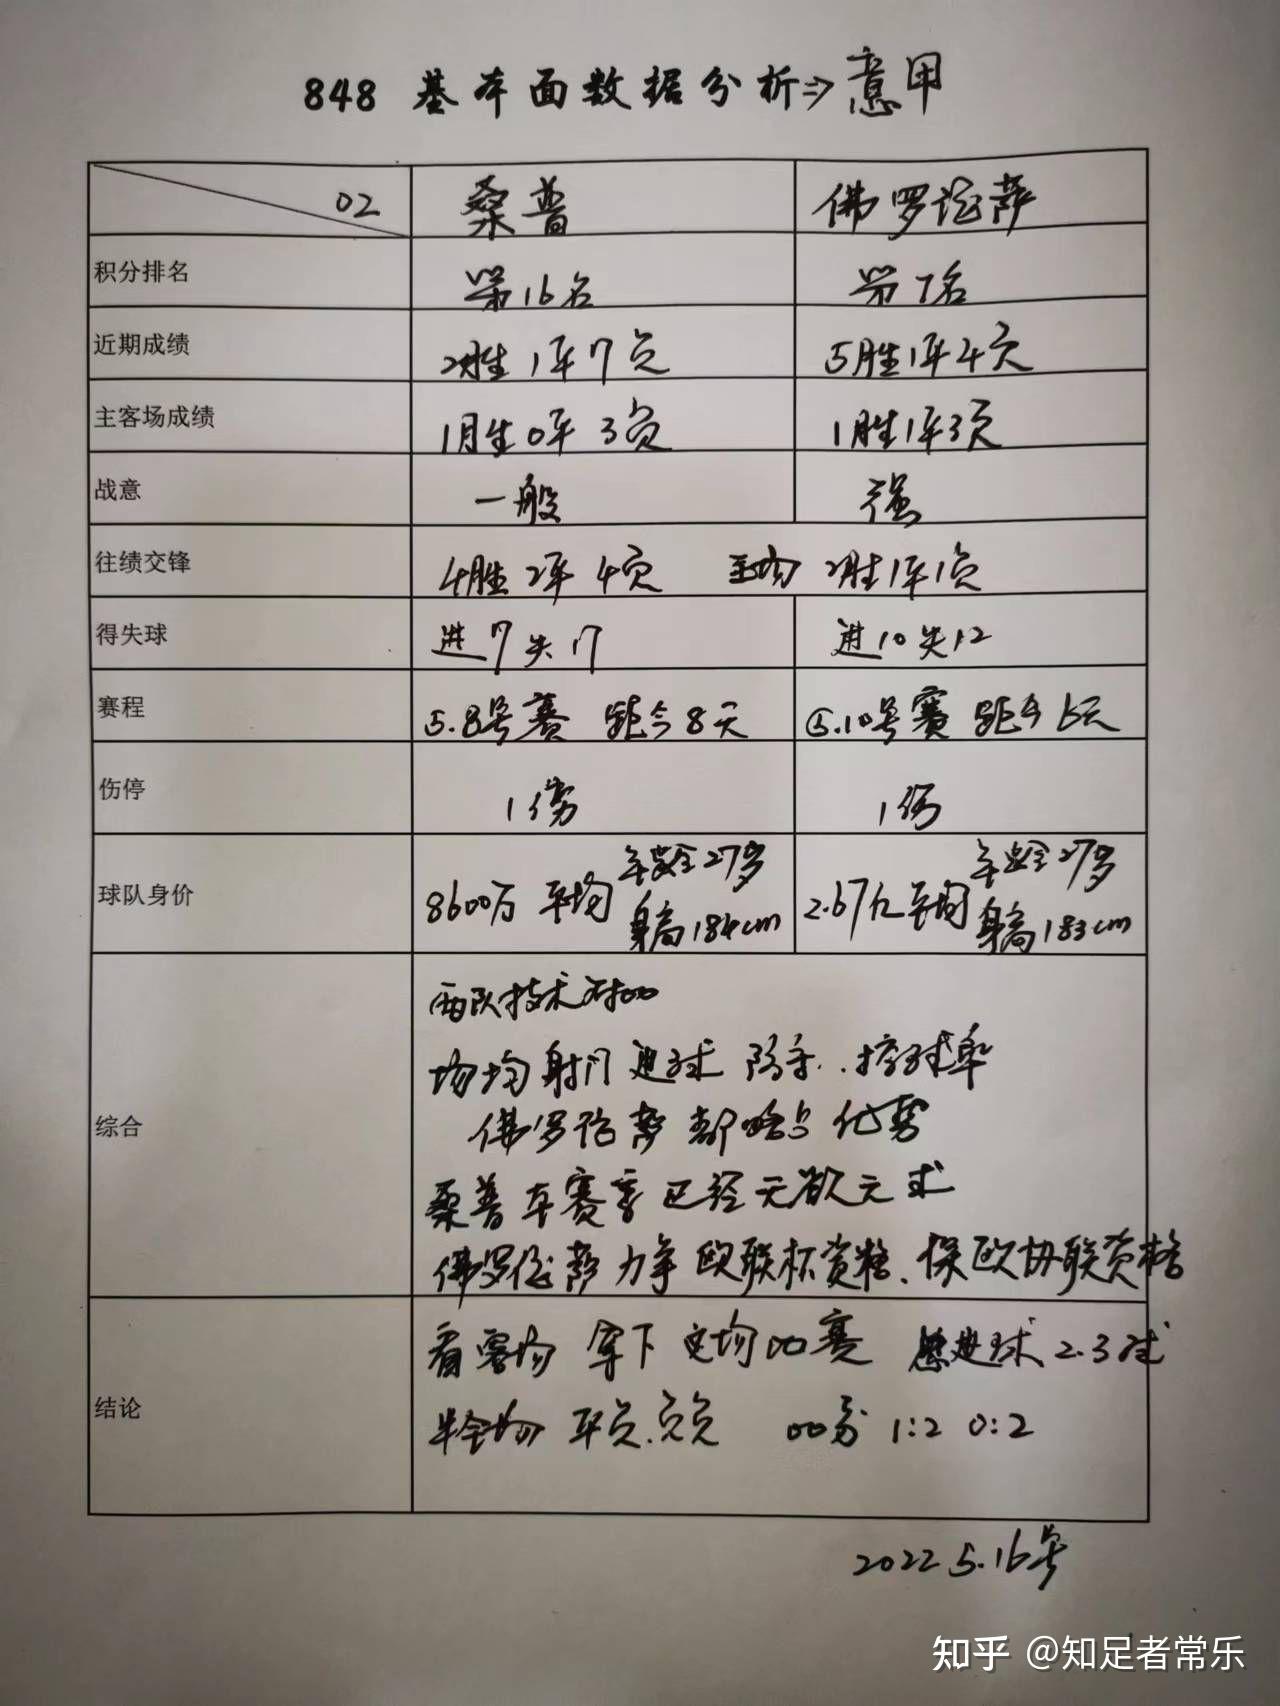 848 基本面数据分析⇒意甲
02 桑普 佛罗伦萨
积分排名 第16名 第7名
近期成绩 2胜1平7负 5胜1平4负
主客场成绩 1胜0平3负 1胜1平3负
战意 一般 强
往绩交锋 4胜2平4负 主场 2胜1平1负
得失球 进7失17 进10失12
赛程 5.8号赛 距今8天 5.10号赛 距今6天
伤停 1伤 1伤
球队身价 8600万 平均 年龄27岁 身高184cm 2.67亿 平均 年龄27岁 身高183cm
综合
两队技术对
场均射门 进球 防守..控球率
佛罗伦萨都略占优势
桑普本赛季已经无欲无求
佛罗伦萨力争欧联杯资格、保欧协联资格
结论
看客场拿下 赛 总进球 2.3球
半全场 平负.负负 1:2 0:2
2022 5.16号
知乎 @知足者常乐